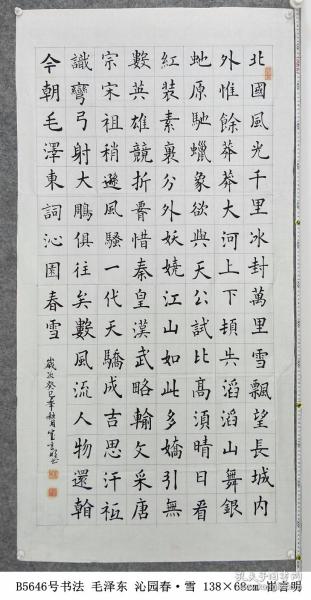 北國風光千里冰封萬里雪飄望長城內
外惟餘莽莽大河上下頓失滔滔山舞銀
虵原馳蠟象欲與天公試比高須晴日看
紅裝素裹分外妖嬈江山如此多嬌引無
數英雄競折惜秦皇漢武略輸文采唐
宗宋祖稍遜風騷一代天驕成吉思汗衹
識彎弓射大鵰俱往矣數風流人物還
今朝毛澤東詞沁園春雪
歲次癸巳年秋月
B5646号书法 毛泽东 沁园春·雪 138×68cm 崔言明